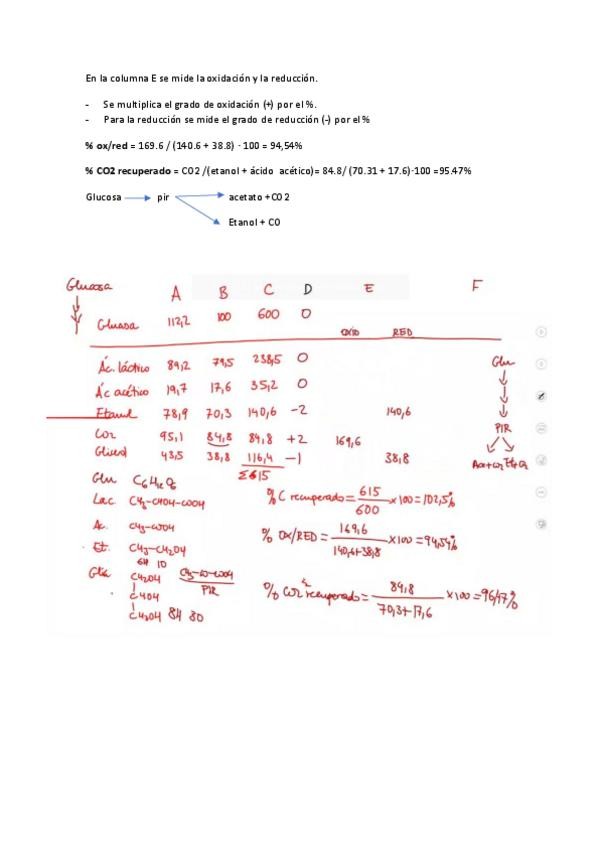 En la columna E se mide la oxidación y la reducción.
- Se multiplica el grado de oxidación (+) por el %.
- Para la reducción se mide el grado de reducción (-) por el %
% ox/red = 169.6 / (140.6 + 38.8) · 100 = 94,54%
% CO2 recuperado = CO2 /(etanol + ácido acético)= 84.8/ (70.31 + 17.6)·100 =95.47%
Glucosa pir acetato +CO2
Etanol + CO
Glucosa A B C D E F
Glucosa 112,2 100 600 0
OXID RED
Ác. láctico 89,2 79,5 238,5 0 Glu
Ác acético 19,7 17,6 35,2 0
Etanol 78,9 70,3 140,6 -2 140,6
CO2 95,1 84,8 84,8 +2 169,6 PIR
Glicerol 43,5 38,8 116,4 -1 38,8
Σ615
Glu C6H12O6 % C recuperado = 615/600 x100 = 102,5%
Lac CH3-CHOH-COOH
Ac. CH3-COOH % OX/RED = 169,6/140,6+38,8 x100 = 94,54%
Et. CH3-CH2OH
6H 1O
Glic CH2OH CH3-CO-COOH
PIR
CHOH % CO2 recuperado = 84,8/70,3+17,6 x100 = 96,47%
CH2OH 8H 3O